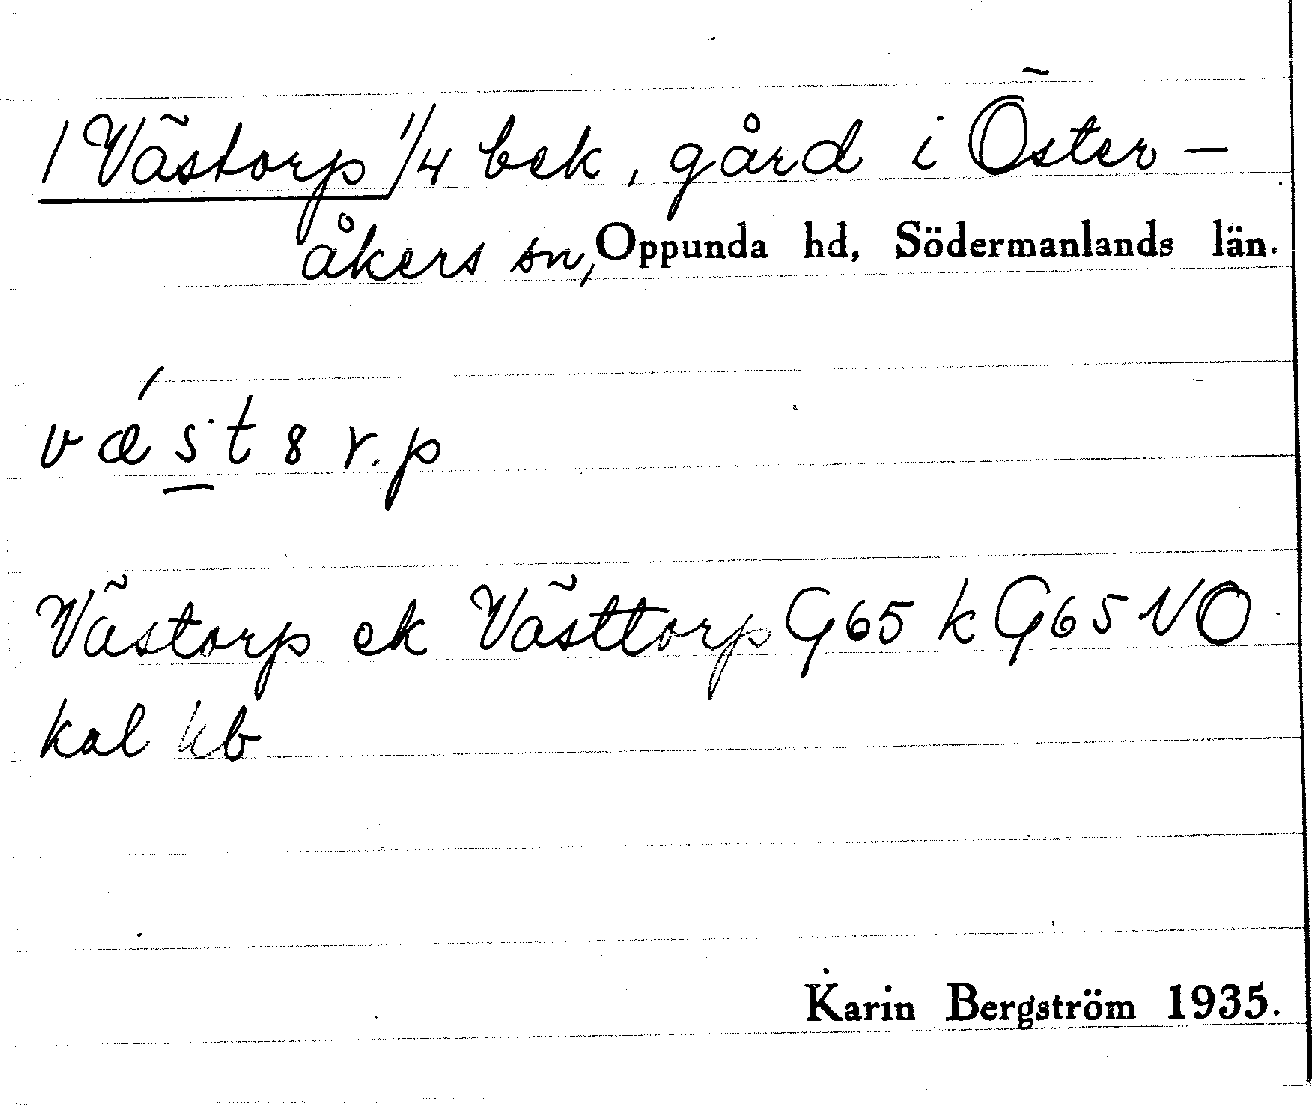 1 Västorp 1/4 bek, gård i Öster-
åkers sn, Oppunda hd, Södermanlands län.
væ´st8r.p
Västorp ek Västtorp G65 k G65 NO
kal kb
Karin Bergström 1935.